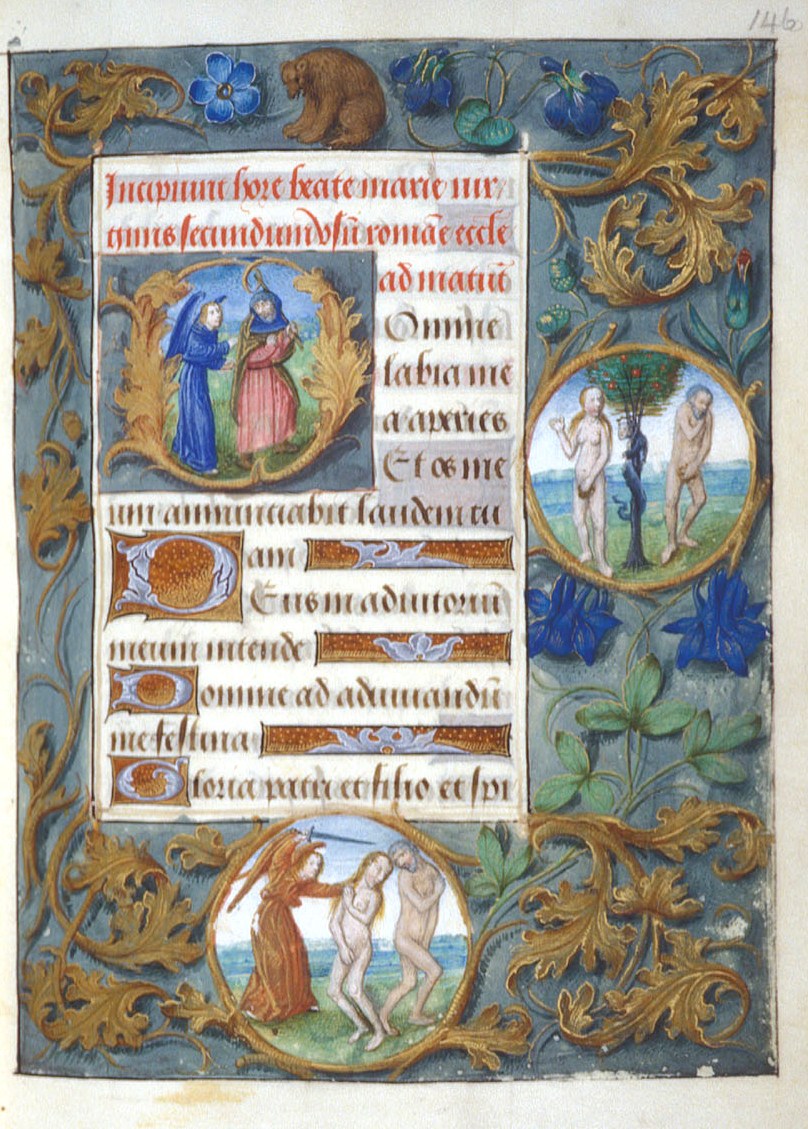 146
Incipiunt hore beate marie uir
ginis secundum vsū romāe eccle
ad matut̄
Omine
labia me
a aperies
Et os me
um annunciabit laudem tu
am
Eus in adiutoriū
meum intende
Domine ad adiuuandū
me festina
Gloria patri et filio et spi